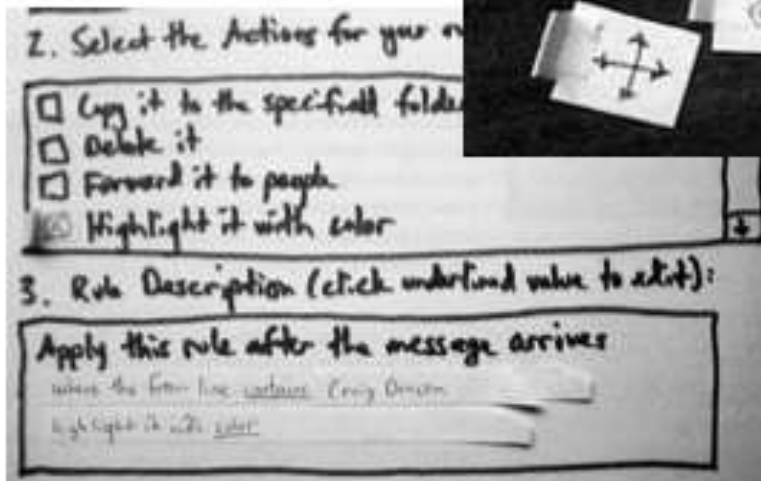 2. Select the Actions for your
Copy it to the specified folde
Delete it
Forward it to people
Highlight it with color
3. Rule Description (click underlined value to edit):
Apply this rule after the message arrives
where the from line contains Craig
highlight it with color